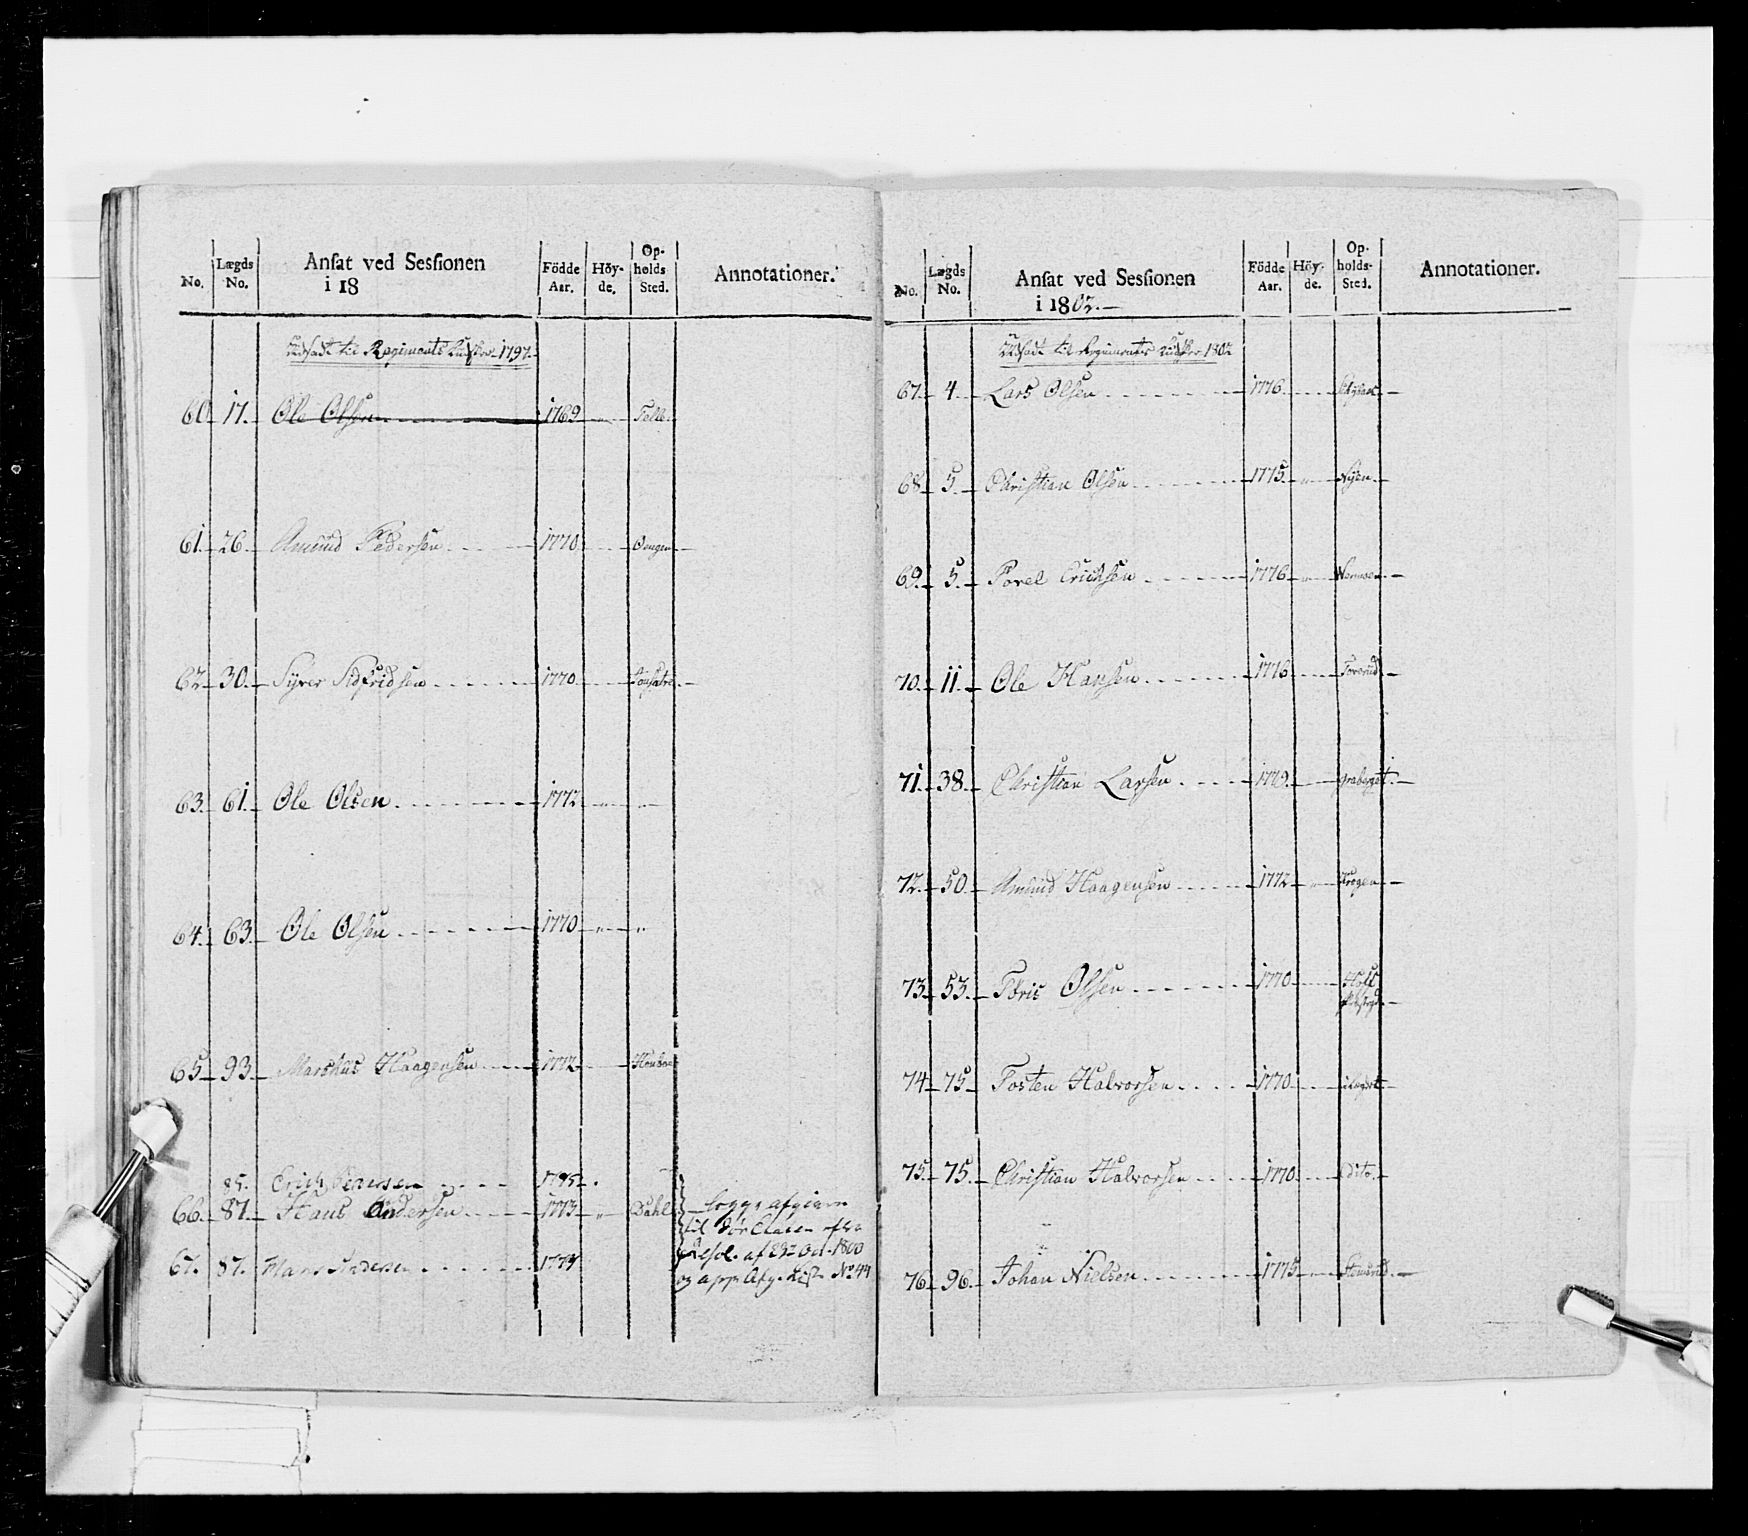 No. Lægds No. Ansat ved Sessionen i 18 Födde Aar. Höy-de. Op-holds Sted. Annotationer.
Udsadt til Regiments 1797.
60. 17. Ole Olsen 1769
61. 26. Amund Pedersen 1770
62. 30. Syver Sidfridsen 1770
63. 61. Ole Olsen 1772
64. 63. Ole Olsen 1770
65. 93. Marckus Haagensen 1772
85. Erich 1775
66. 87. Hans Andersen 1773 Dahl
67. 87. Hans Andersen 1774
til
Resol. af 29de Oct. 1800
og app. Afg. List No. 44
No. Lægds No. Ansat ved Sessionen i 1802. Födde Aar. Höy-de. Op-holds-Sted. Annotationer.
Udsadt til Regimentes 1802
67. 4. Lars Olsen 1776
68. 5. Christian Olsen 1775 Nyen
69. 5. Povel Erichsen 1776
70. 11. Ole Hansen 1776
71. 38. Christian Larsen 1779 Graberget
72. 50. Amund Haagensen 1772 Krogen
73. 53. Töris Olsen 1770
74. 75. Tosten Halvorsen 1770
75. 75. Christian Halvorsen 1770 dito
76. 96. Johan Nielsen 1775